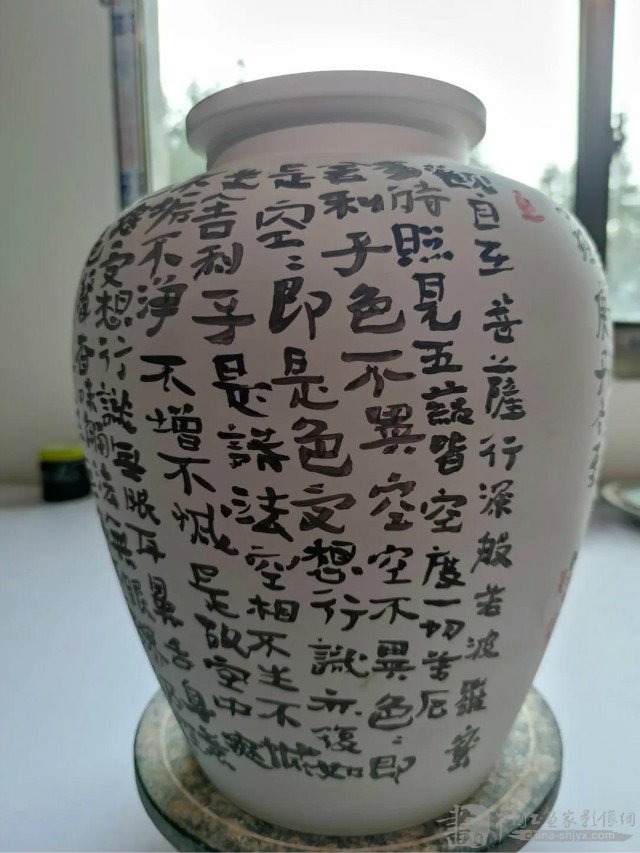 庚子
觀自在菩薩行深般若波羅蜜
多時照見五蘊皆空度一切苦厄
舍利子色不異空空不異色〻即
是空〻即是色受想行識亦復如
是舍利子是諸法空相不生不滅
垢不淨不增不減是故空中無
無受想行識無眼耳鼻舌身意
色聲香味觸法無眼界
家影像網
china-shjyx.com